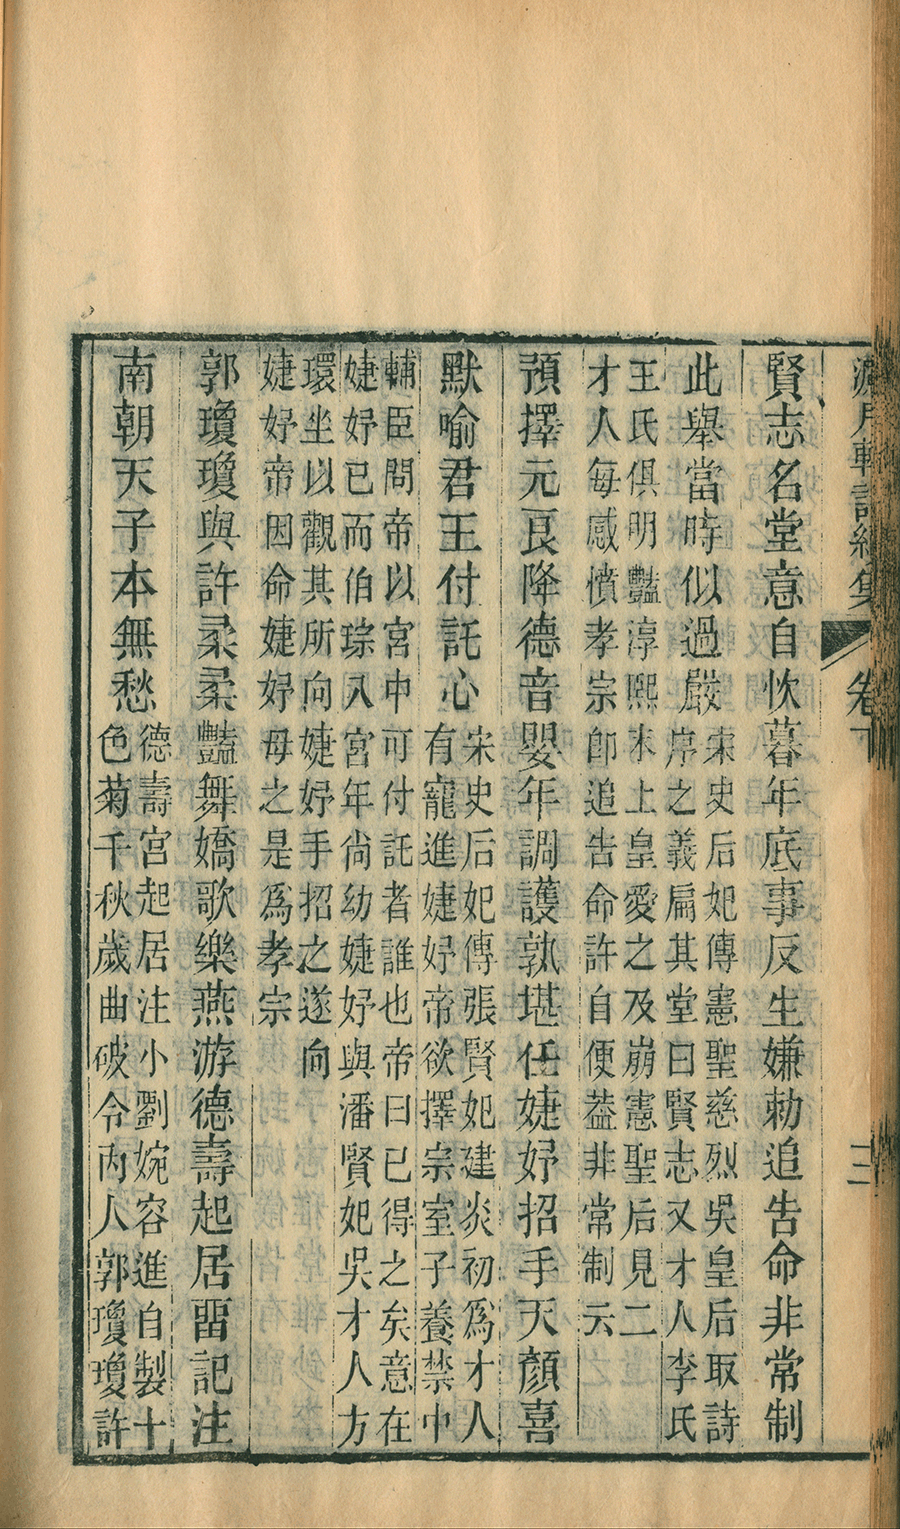 濾月軒詩續集 卷下 三
賢志名堂意自忺暮年底事反生嫌勅追告命非常制
此舉當時似過嚴
宋史后妃傳憲聖慈烈吳皇后取詩
序之義扁其堂曰賢志又才人李氏
王氏俱明豔淳熙末上皇愛之及崩憲聖后見二
才人每感憤孝宗卽追告命許自便葢非常制云
預擇元良降德音嬰年調護孰堪任婕妤招手天顏喜
默喻君王付託心
宋史后妃傳張賢妃建炎初爲才人
有寵進婕妤帝欲擇宗室子養禁中
輔臣問帝以宮中可付託者誰也帝曰已得之矣意在
婕妤已而伯琮入宮年尚幼婕妤與潘賢妃吳才人方
環坐以觀其所向婕妤手招之遂向
婕妤帝因命婕妤母之是爲孝宗
郭瓊瓊與許柔柔豔舞嬌歌樂燕游德壽起居畱記注
南朝天子本無愁
德壽宮起居注小劉婉容進自製十
色菊千秋歲曲破令內人郭瓊瓊許